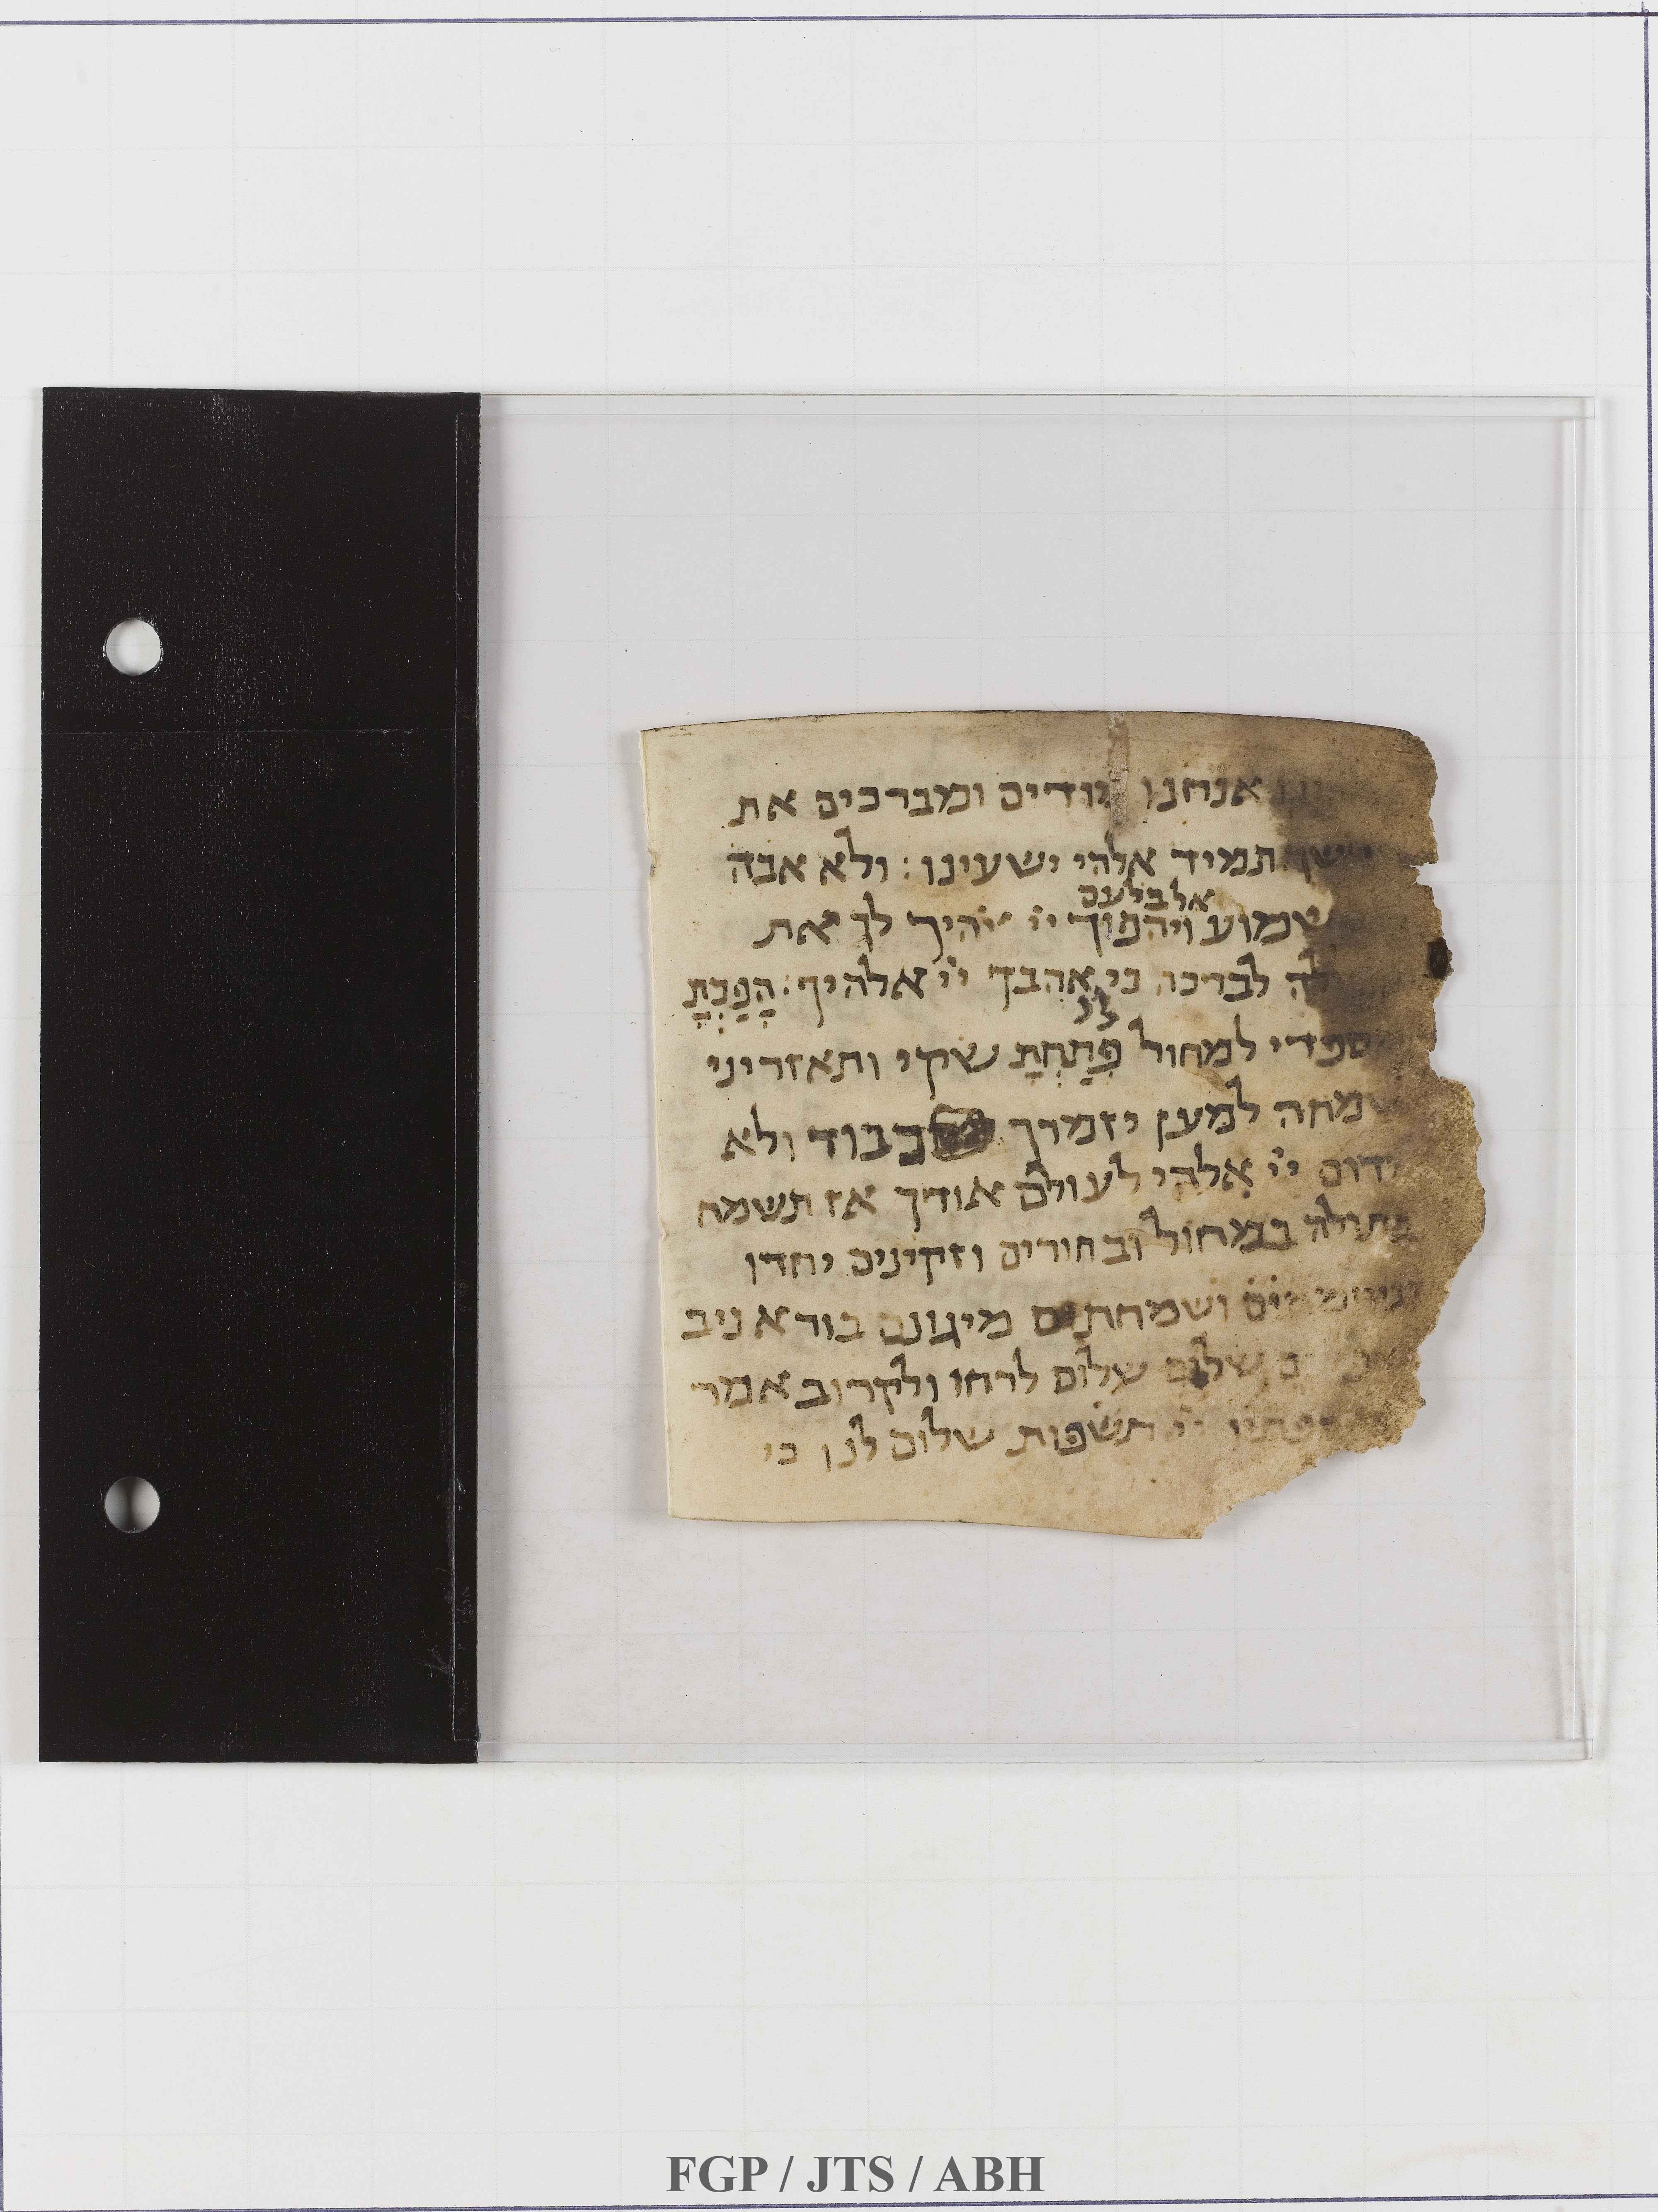 אנחנו מודים ומברכים את
תמיד אלהי ישעינו : ולא אבה
אל בלעם
שמוע ויהפוך ייי אלהיך לך את
לברכה כי אהבך ייי אלהיך : הָפַכְתָּ
לי
מספדי למחול פִתַחְתָּ שקי ותאזריני
שמחה למען יזמרך כבוד ולא
ידום ייי אלהי לעולם אודך אז תשמח
בתולה במחול ובחורים וזקינים יחדו
ושמחתים מיגונם בורא ניב
שלום שלום לרחו ולקרוב אמר
תשפות שלום לנו כי
FGP / JTS / ABH